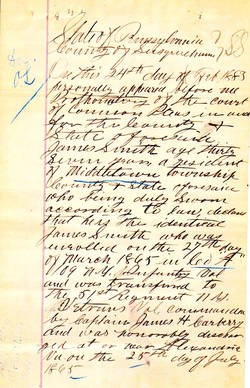 State of Pennsylvania
County of Susquehanna } SS
On this 24th day of Feb 1883
personally appeared before me
Prothonotary of the Court
of Common Pleas in and
for the County &
State aforesaid
James Smith age thirty
seven years, a resident
of Middletown township
County & State aforesaid
who being duly sworn
according to law, declares
that he is the identical
James Smith who was
enrolled on the 29th day
of March 1865 in Co
109 N.Y. Infantry Vol
and was transferred to
the 51st Regiment N.Y.
Veterans Vol Commanded
by Captain James H.
and was honorably discharg
ed at or near Alexandria
Va on the 25th day of July
1865